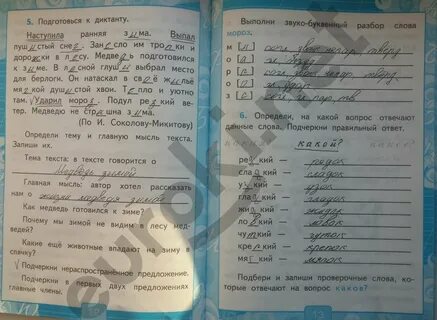 5. Подготовьтесь к диктанту.
Наступила ранняя зима. Выпал
пушистый снег. Занесло им тропки и
дорожки в лесу. Медведь подготовился
к зиме. В лесной глуши выбрал место
для берлоги. Он натаскал в своё жильё
мягкой душистой хвои. Тепло и уютно
там. √Ударил мороз. Подул резкий ве-
тер. Медведю не страшна зима.
(По И. Соколову-Микитову)
Определи тему и главную мысль текста.
Запиши их.
Тема текста: в тексте говорится о
медведь зимой
Главная мысль: автор хотел рассказать
нам о жизни медведя зимой
Как медведь готовился к зиме?
Почему мы зимой не видим в лесу мед-
ведей?
Какие ещё животные впадают на зиму в
спячку?
√ Подчеркни нераспространённое предложение.
Подчеркни в первых двух предложениях
главные члены.
Выполни звуко-буквенный разбор слова
мороз.
м
о
р
о
з
6. Определи, на какой вопрос отвечают
данные слова. Подчеркни правильный ответ.
какой?
редкий — редок
сладкий — сладок
узкий — узок
гладкий — гладок
жидкий — жидок
ловкий — ловок
чуткий — чуток
крепкий — крепок
мягкий — мягок
Подбери и запиши проверочные слова, ко-
торые отвечают на вопрос каков?
13
evroki.net